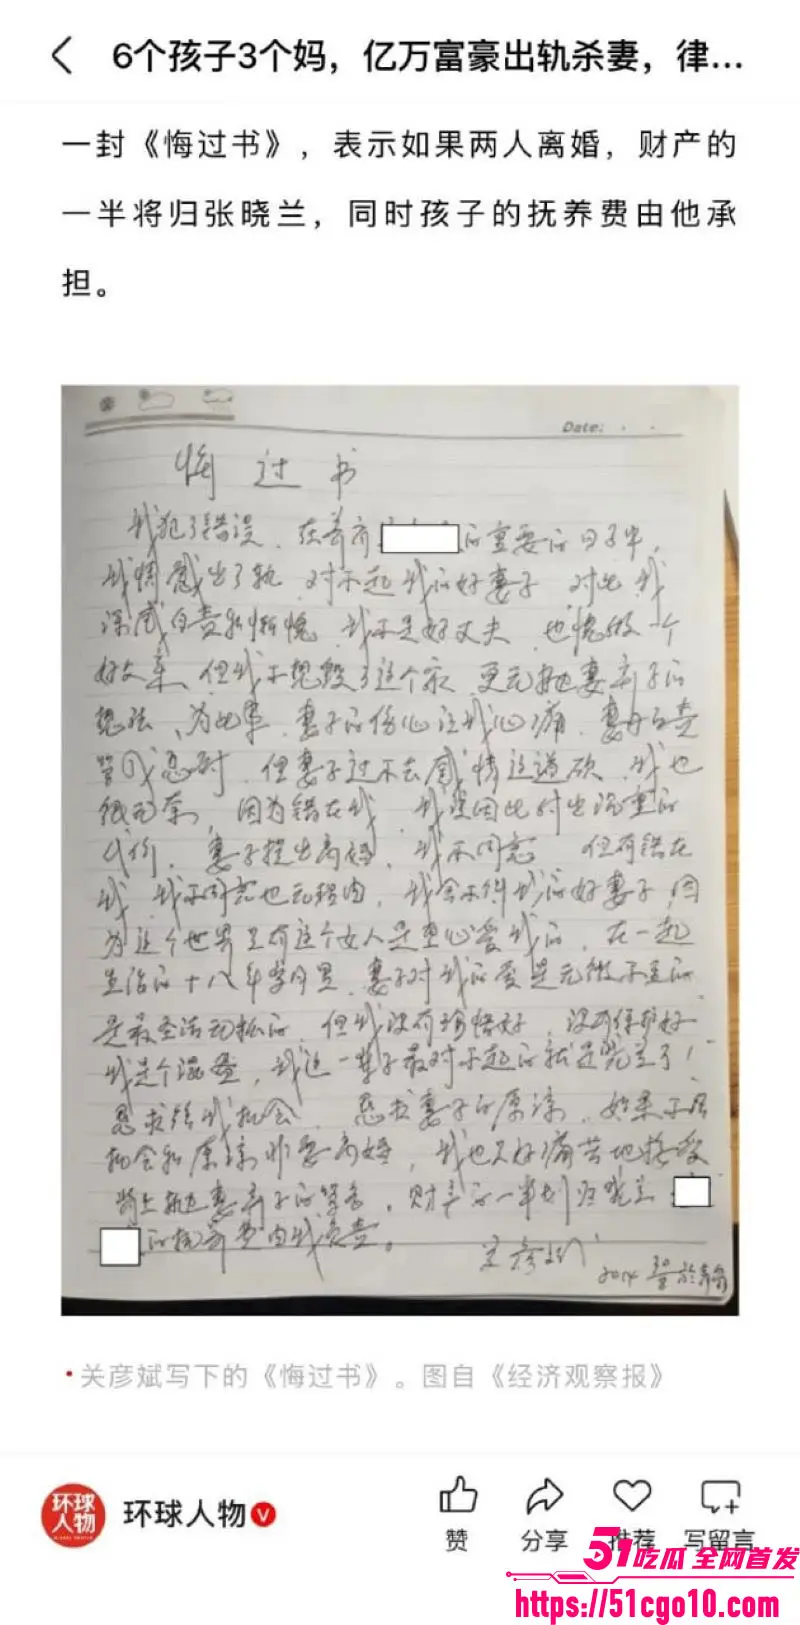 6个孩子3个妈，亿万富豪出轨杀妻，律...
一封《悔过书》，表示如果两人离婚，财产的
一半将归张晓兰，同时孩子的抚养费由他承
担。
Date:
悔过书
我犯了错误。在养育 的重要的日子里，
我情感出了轨，对不起我的好妻子，对此我
深感自责和惭愧，我不是好丈夫，也愧做一个
好父亲，但我不想毁了这个家，更无抛妻弃子的
想法，为此事，妻子的伤心让我心痛，妻
但妻子过不去感情这道砍，我也
很无奈，因为错在我，我要因此付出沉重的
代价，妻子提出离婚，我不同意，但有错在
我，我不同意也无理由，我舍不得我的好妻子，因
为这个世界只有这个女人是真心爱我的，在一起
生活的十八年岁月里，妻子对我的爱是无微不至的
是最圣洁无私的，但我没有珍惜好，没有保护好
我是个混蛋，我这一辈子最对不起的就是晓兰了！
恳求给我机会，恳求妻子的原谅，如果不给
机会和原谅非要离婚，我也只好痛苦地接受
背上抛妻弃子的 ，财产的一半划归晓兰
的抚养费由我负责。
关彦斌
2014
•关彦斌写下的《悔过书》。图自《经济观察报》
环球人物
环球人物
赞
分享
推荐
写留言
51吃瓜 全网首发
https://51cgo10.com